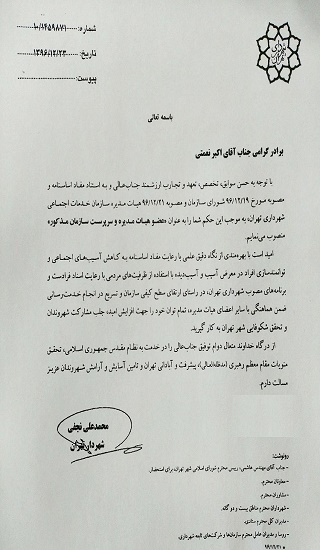 شماره: ۱۰/۱۴۵۹۸۷۱
تاریخ: ۱۳۹۶/۱۲/۲۳
پیوست:
باسمه تعالی
برادر گرامی جناب آقای اکبر نعمتی
با توجه به حسن سوابق، تخصص، تعهد و تجارب ارزشمند جناب‌عالی و به استناد مفاد اساسنامه و
مصوبه مورخ ۹۶/۱۲/۱۹ شورای سازمان و مصوبه ۹۶/۱۲/۲۱ هیات مدیره سازمان خدمات اجتماعی
شهرداری تهران، به موجب این حکم شما را به عنوان «عضو هیات مدیره و سرپرست سازمان مذکور»
منصوب می‌نمایم.
امید است با بهره‌مندی از نگاه دقیق علمی با رعایت مفاد اساسنامه به کاهش آسیب‌های اجتماعی و
توانمندسازی افراد در معرض آسیب و آسیب‌دیده با استفاده از ظرفیت‌های مردمی با رعایت اسناد فرادست و
برنامه‌های مصوب شهرداری تهران، در راستای ارتقای سطح کیفی سازمان و تسریع در انجام خدمت‌رسانی
ضمن هماهنگی با سایر اعضای هیات مدیره، تمام توان خود را جهت افزایش امید، جلب مشارکت شهروندان
و تحقق شکوفایی شهر تهران به کار گیرید.
از درگاه خداوند متعال دوام توفیق جناب‌عالی را در خدمت به نظام مقدس جمهوری اسلامی، تحقق
منویات مقام معظم رهبری (مدظله‌العالی)، پیشرفت و آبادانی تهران و تامین آسایش و آرامش شهروندان عزیز
مسالت دارم.
محمدعلی نجفی
شهردار تهران
رونوشت:
- جناب آقای مهندس هاشمی، رییس محترم شورای اسلامی شهر تهران، برای استحضار
- معاونان محترم
- مشاوران محترم
- شهرداران محترم مناطق بیست و دو گانه
- مدیران کل محترم ستادی
- روسا و مدیران عامل محترم سازمان‌ها و شرکت‌های تابعه شهرداری
۹۶/۱۲/۲۱